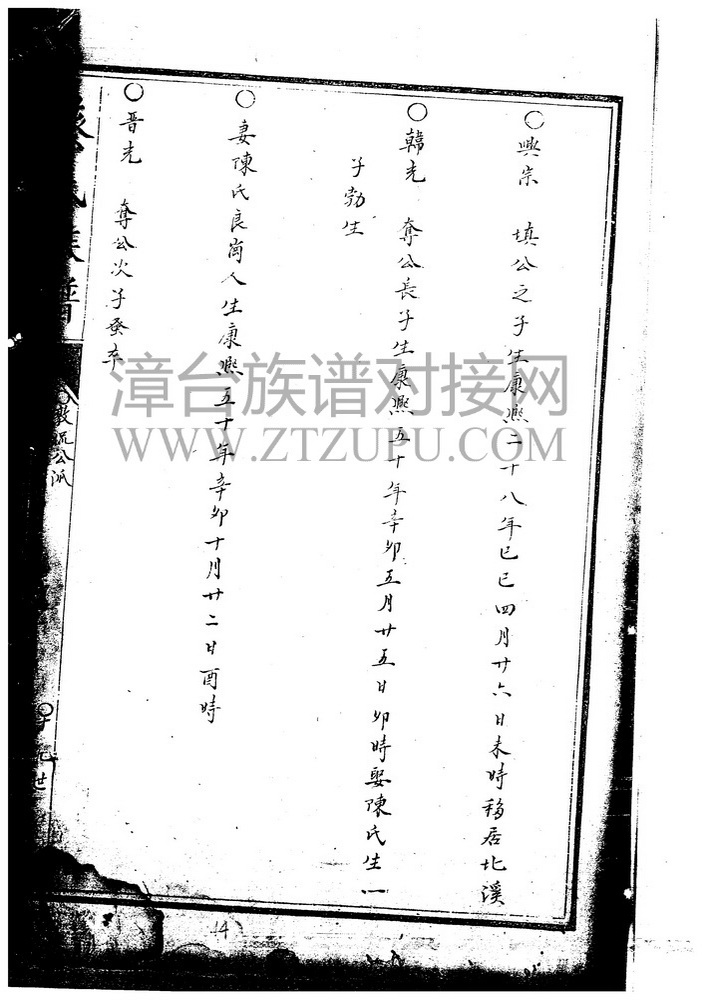 ○興宗 填公之子生康熙二十八年己巳四月廿六日未時移居北溪
○韓光 奪公長子生康熙五十年辛卯五月廿五日卯時娶陳氏生一
子勃生
○妻陳氏良崗人生康熙五十年辛卯十月廿二日酉時
○晋光 奪公次子蚤卒
氏族譜
公派
世
14
漳台族谱对接网
WWW.ZTZUPU.COM